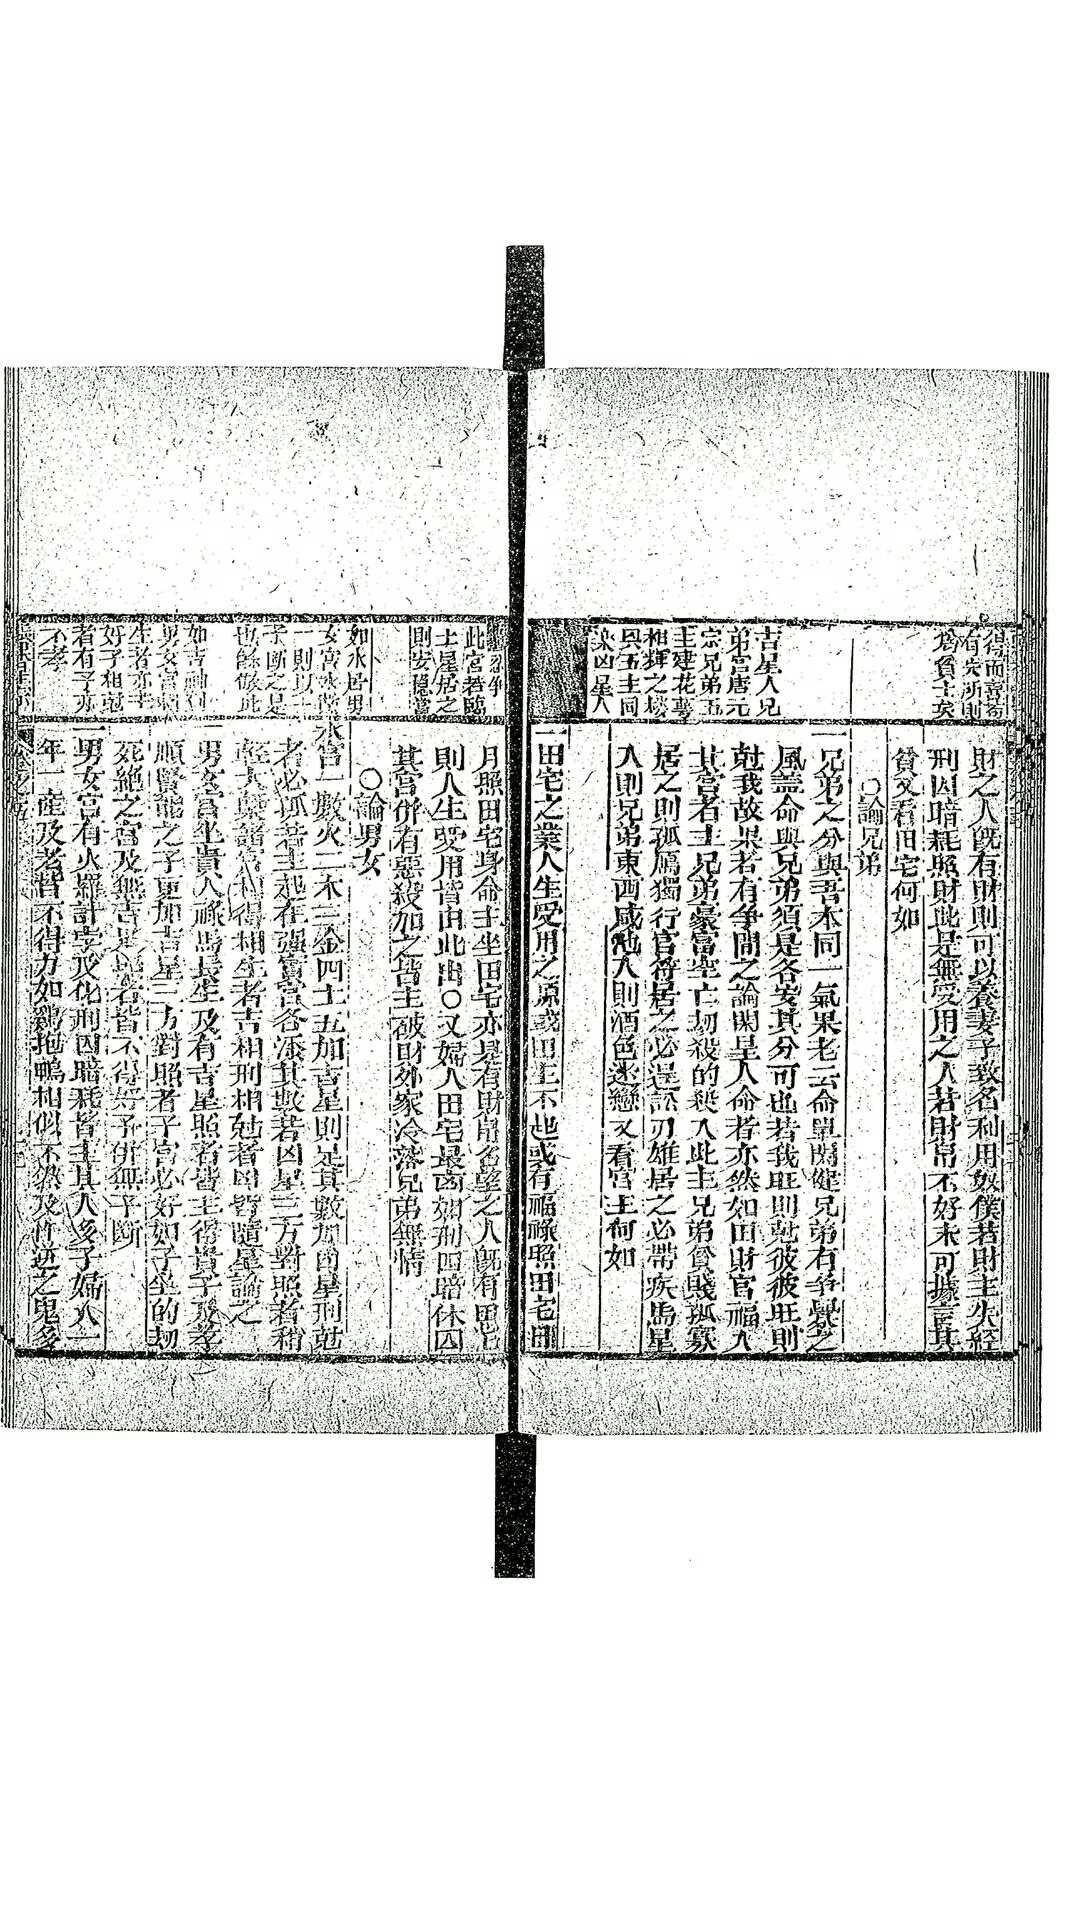 得而喜奇
有失所則
為貧士矣
吉星入兄
弟宮唐元
宗兄弟五
主建花萼
相輝之樓
與五主同
此宮若臨
土星居之
則安穩當
如水居男
女宮水為
一則以一
子斷之是
也餘倣此
如吉神到
男女宮剋
生者亦主
好子相剋
者有子亦
不孝
財之人既有財則可以養妻子致名利用奴僕若財主失經
刑囚暗耗照財此是無受用之人若財帛不好未可據言其
貧又看田宅何如
○論兄弟
一兄弟之分與吾本同一氣果老云命單關健兄弟有爭釁之
風蓋命與兄弟須是各安其分可也若我旺則剋彼彼旺則
剋我故果老有爭間之論閑星人命者亦然如田財官福入
其宮者主兄弟豪富空亡刼殺的殺入此主兄弟貧賤孤寡
居之則孤厲獨行官符居之必逞訟刃雄居之必帶疾馬星
入則兄弟東西咸池入則酒色迷戀又看宮主何如
一田宅之業人生受用之源或田主不也或有福祿照田宅
月照田宅身命主坐田宅亦是有財帛名望之人既有田宅
則人生受用皆由此出○又婦人田宅最凶如刑囚暗休囚
其宮併有惡殺加之皆主破財外家冷落兄弟無情
○論男女
水宮一數火二木三金四土五加吉星則足其數加凶星刑剋
者必孤若主起在強實宮各添其數若凶星三方對照者稍
輕大槩諸宮相得相生者吉相刑相剋者凶皆隨星論之
一男女宮坐貴人祿馬長生及有吉星照者皆主得貴子及孝
順賢能之子更加吉星三方對照者子宮必好如子坐的刼
死絕之宮及無吉星者皆不得好子併無子斷
一男女宮有火羅計孛及化刑囚暗耗皆主其人多子婦人一
年一產及老皆不得力如鷄抱鴨相似不然及忤逆之鬼多